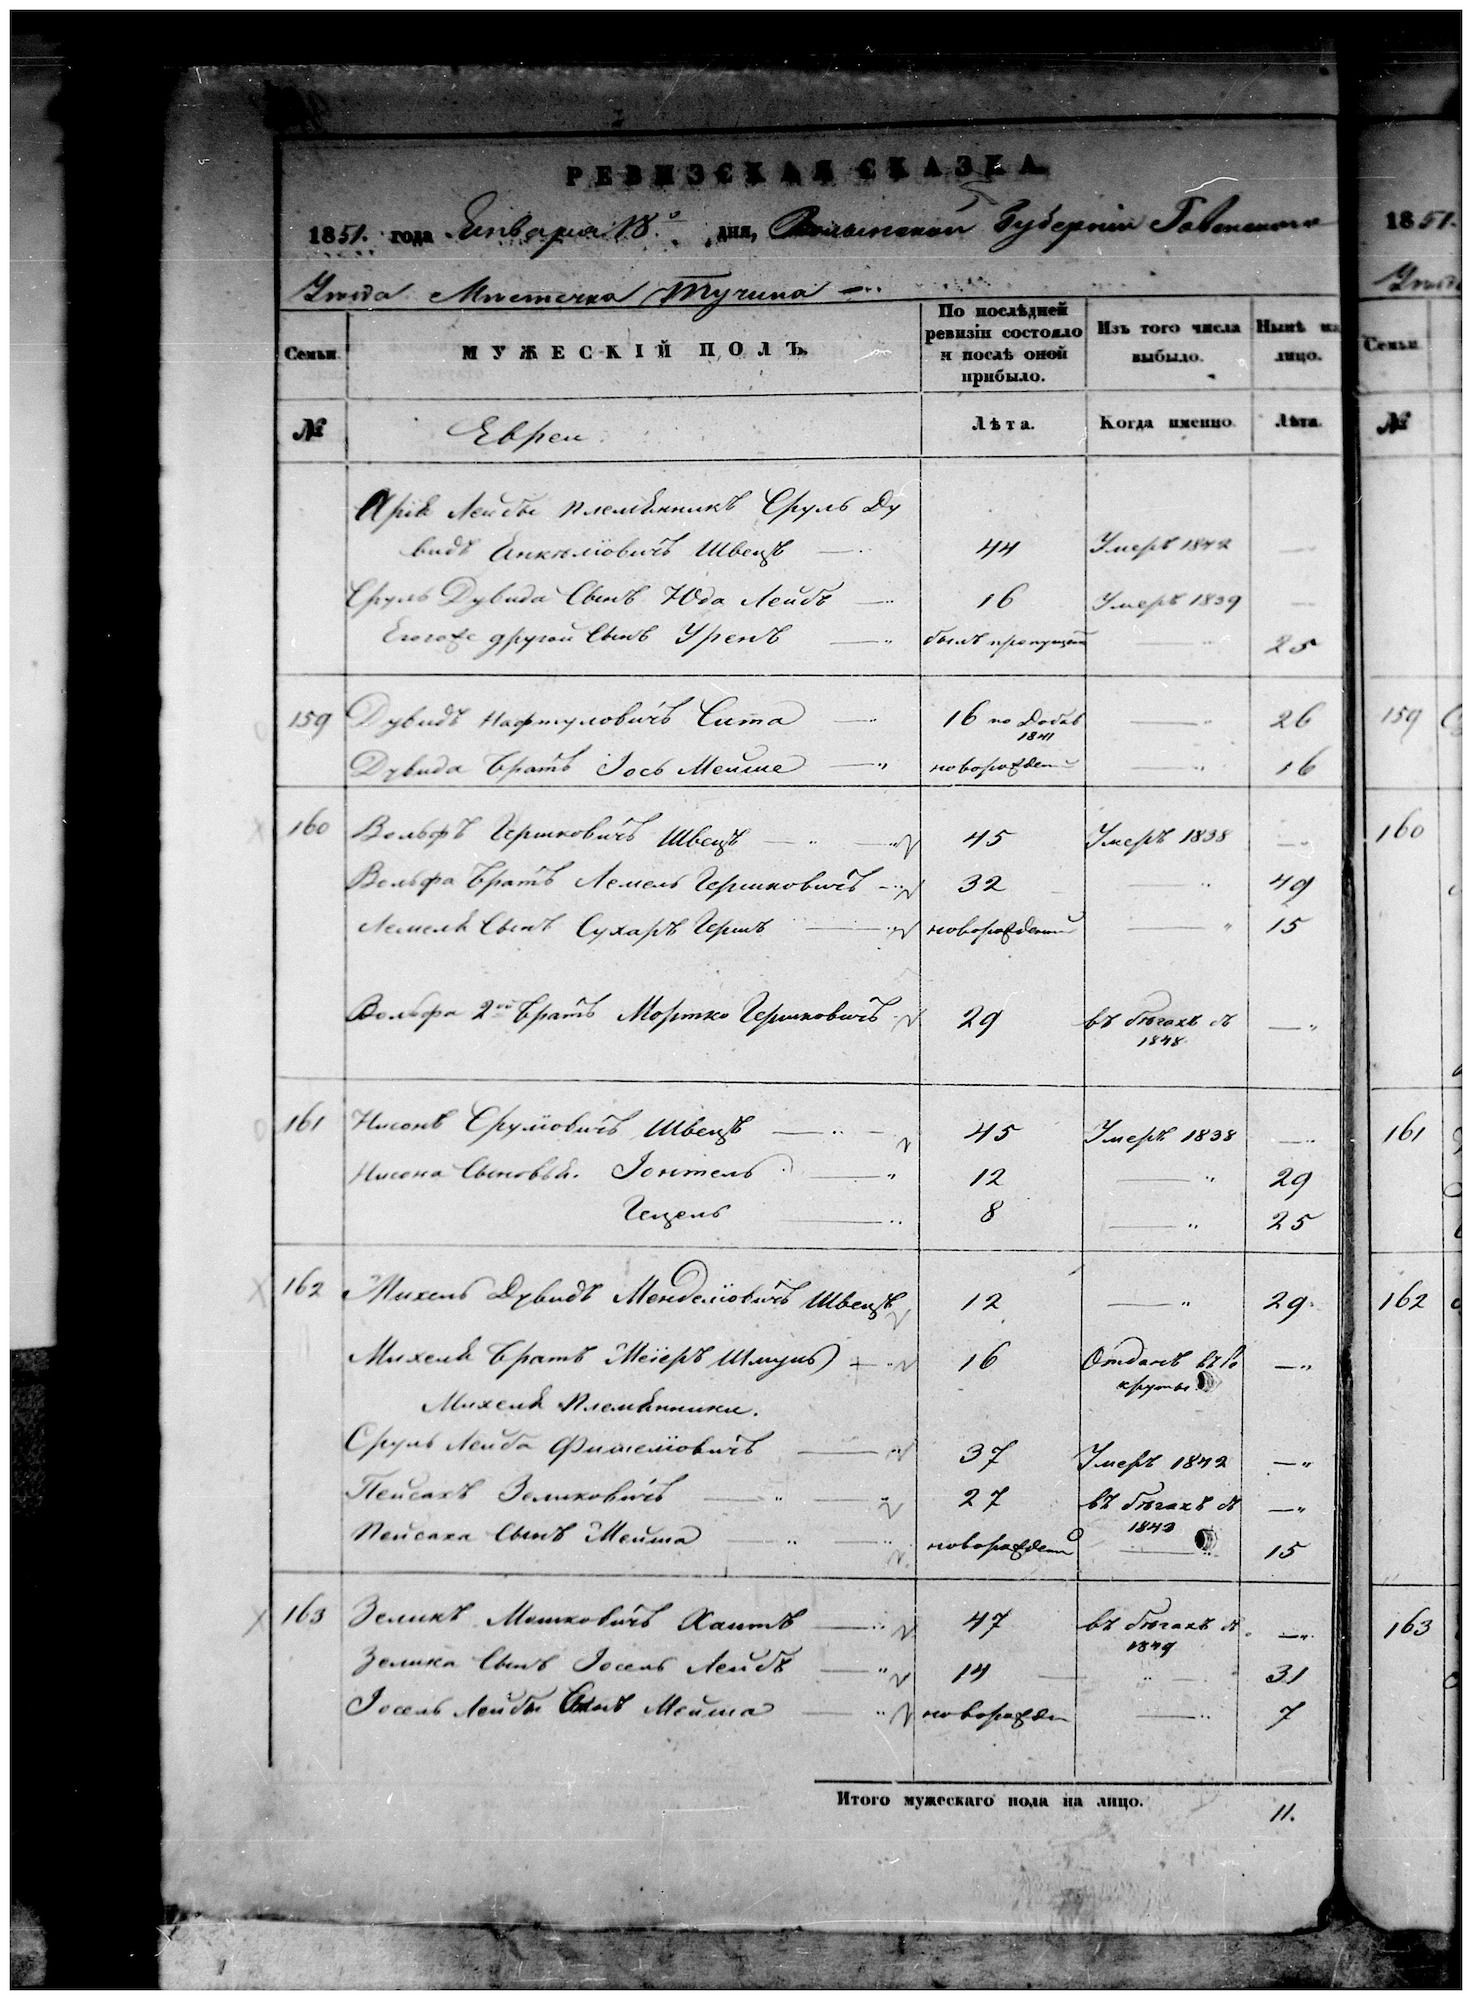 РЕВИЗСКАЯ СКАЗКА.
1851. года Января 18го дня, Волынской Губернии Ровенского
Уезда Местечка Тучина
Семьи. МУЖЕСКІЙ ПОЛЪ. По послѣдней ревизіи состояло и послѣ оной прибыло. Изъ того числа выбыло. Нынѣ на лицо.
№ Евреи Лѣта. Когда именно. Лѣта.
Лейбы племянникъ Сруль Ду
видъ Янкелiовичъ Швецъ 44 Умеръ 1842
Сруль Дувида Сынъ Юда Лейбъ 16 Умеръ 1839
Его же другой Сынъ Уренъ былъ 25
159 Дувидъ Нафтуловичъ Сита 16 по Добав 1841 26
Дувида Братъ Іось Мейше новорожден 16
160 Вольфъ Гершковичъ Швецъ 45 Умеръ 1838
Вольфа Братъ Лемель Гершковичъ 32 49
Лемеля Сынъ Сухаръ Гершъ новорожденный 15
Вольфа 2ой Братъ Мортко Гершковичъ 29 въ бѣгахъ съ 1848
161 Нисонъ Срулiовичъ Швецъ 45 Умеръ 1838
Нисона Сыновья. Іонтель 12 29
Гецель 8 25
162 Михель Дувидъ Менделiовичъ Швецъ 12 29
Михеля Братъ Меiеръ Шмуль 16 Отданъ въ Ре
круты
Михеля племянники.
Сруль Лейба Фишелiовичъ 37 Умеръ 1842
Пейсахъ Зеликовичъ 27 въ бѣгахъ съ 1843
Пейсаха Сынъ Мейша новорожден 15
163 Зеликъ Мошковичъ Хаитъ 47 въ бѣгахъ съ 1849
Зелика Сынъ Іосель Лейбъ 14 31
Іосель Лейбы Сынъ Мейша новорожден 7
Итого мужескаго пола на лицо. 11.
1851.
Уезда
Семьи
№
159
160
161
162
163